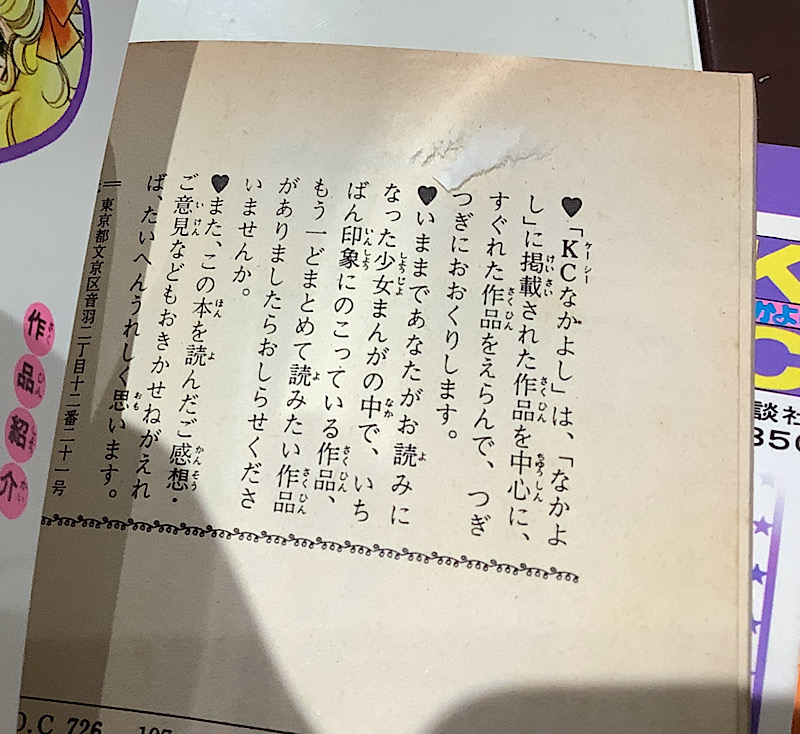 ♥「KCなかよし」は、「なかよ
し」に掲載された作品を中心に、
すぐれた作品をえらんで、つぎ
つぎにおおくりします。
♥いままであなたがお読みに
なった少女まんがの中で、いち
ばん印象にのこっている作品、
もう一どまとめて読みたい作品
がありましたらおしらせくださ
いませんか。
♥また、この本を読んだご感想・
ご意見などもおきかせねがえれ
ば、たいへんうれしく思います。
東京都文京区音羽二丁目十二番二十一号
作品紹介
D.C 726
K
かよ
C
談社
350